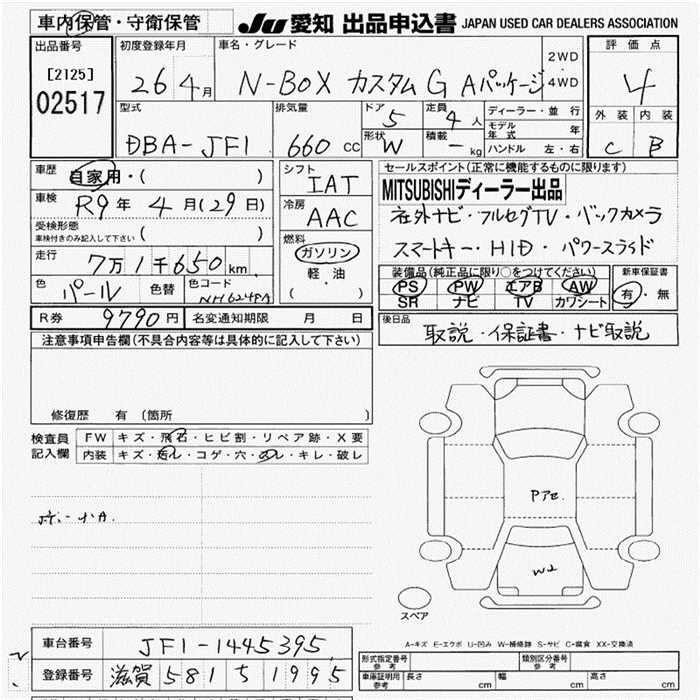 車内保管・守衛保管
JU 愛知 出品申込書 JAPAN USED CAR DEALERS ASSOCIATION
出品番号
[2125]
02517
初度登録年月
26 4月
車名・グレード
N-BOX カスタム G Aパッケージ
2WD
・
4WD
評価点
4
外装 内装
C B
型式
DBA-JF1
排気量
660 CC
ドア
5
定員
4人
形状
W
積載
- kg
ディーラー・並行
モデル年式 年
ハンドル 左・右
車歴
自家用・( )
車検
R9年 4月(29日)
受検形態
車検付きのみ記入して下さい ( )
走行
7万1千650km
色
パール
色替
色コード
NH624PA
シフト
IAT
冷房
AAC
燃料
ガソリン
軽・油
( )
セールスポイント(正常に機能するものに限ります)
MITSUBISHIディーラー出品
社外ナビ・フルセグTV・バックカメラ
スマートキー・HID・パワースラッド
装備品(純正品に限り○をつけてください)
PS PW エアB AW
SR ナビ TV カワシート
新車保証書
有・無
R券 9790円 名変通知期限 月 日
後日品
取説・保証書・ナビ取説
注意事項申告欄(不具合内容等は具体的に記入して下さい)
修復歴 有 (箇所 )
検査員
記入欄
FW キズ・飛石・ヒビ割・リペア跡・X要
内装 キズ・汚レ・コゲ・穴・スレ・キレ・破レ
Pアセ.
W2
スペア
A-キズ E-エクボ U-凹み W-補修跡 S-サビ C-腐食 XX-交換済
車台番号 JF1-1445395
登録番号 滋賀 581 ち 1995
形式指定番号
参考
類別区分番号
参考
車庫証明用
参考
長さ cm 幅 cm 高さ cm